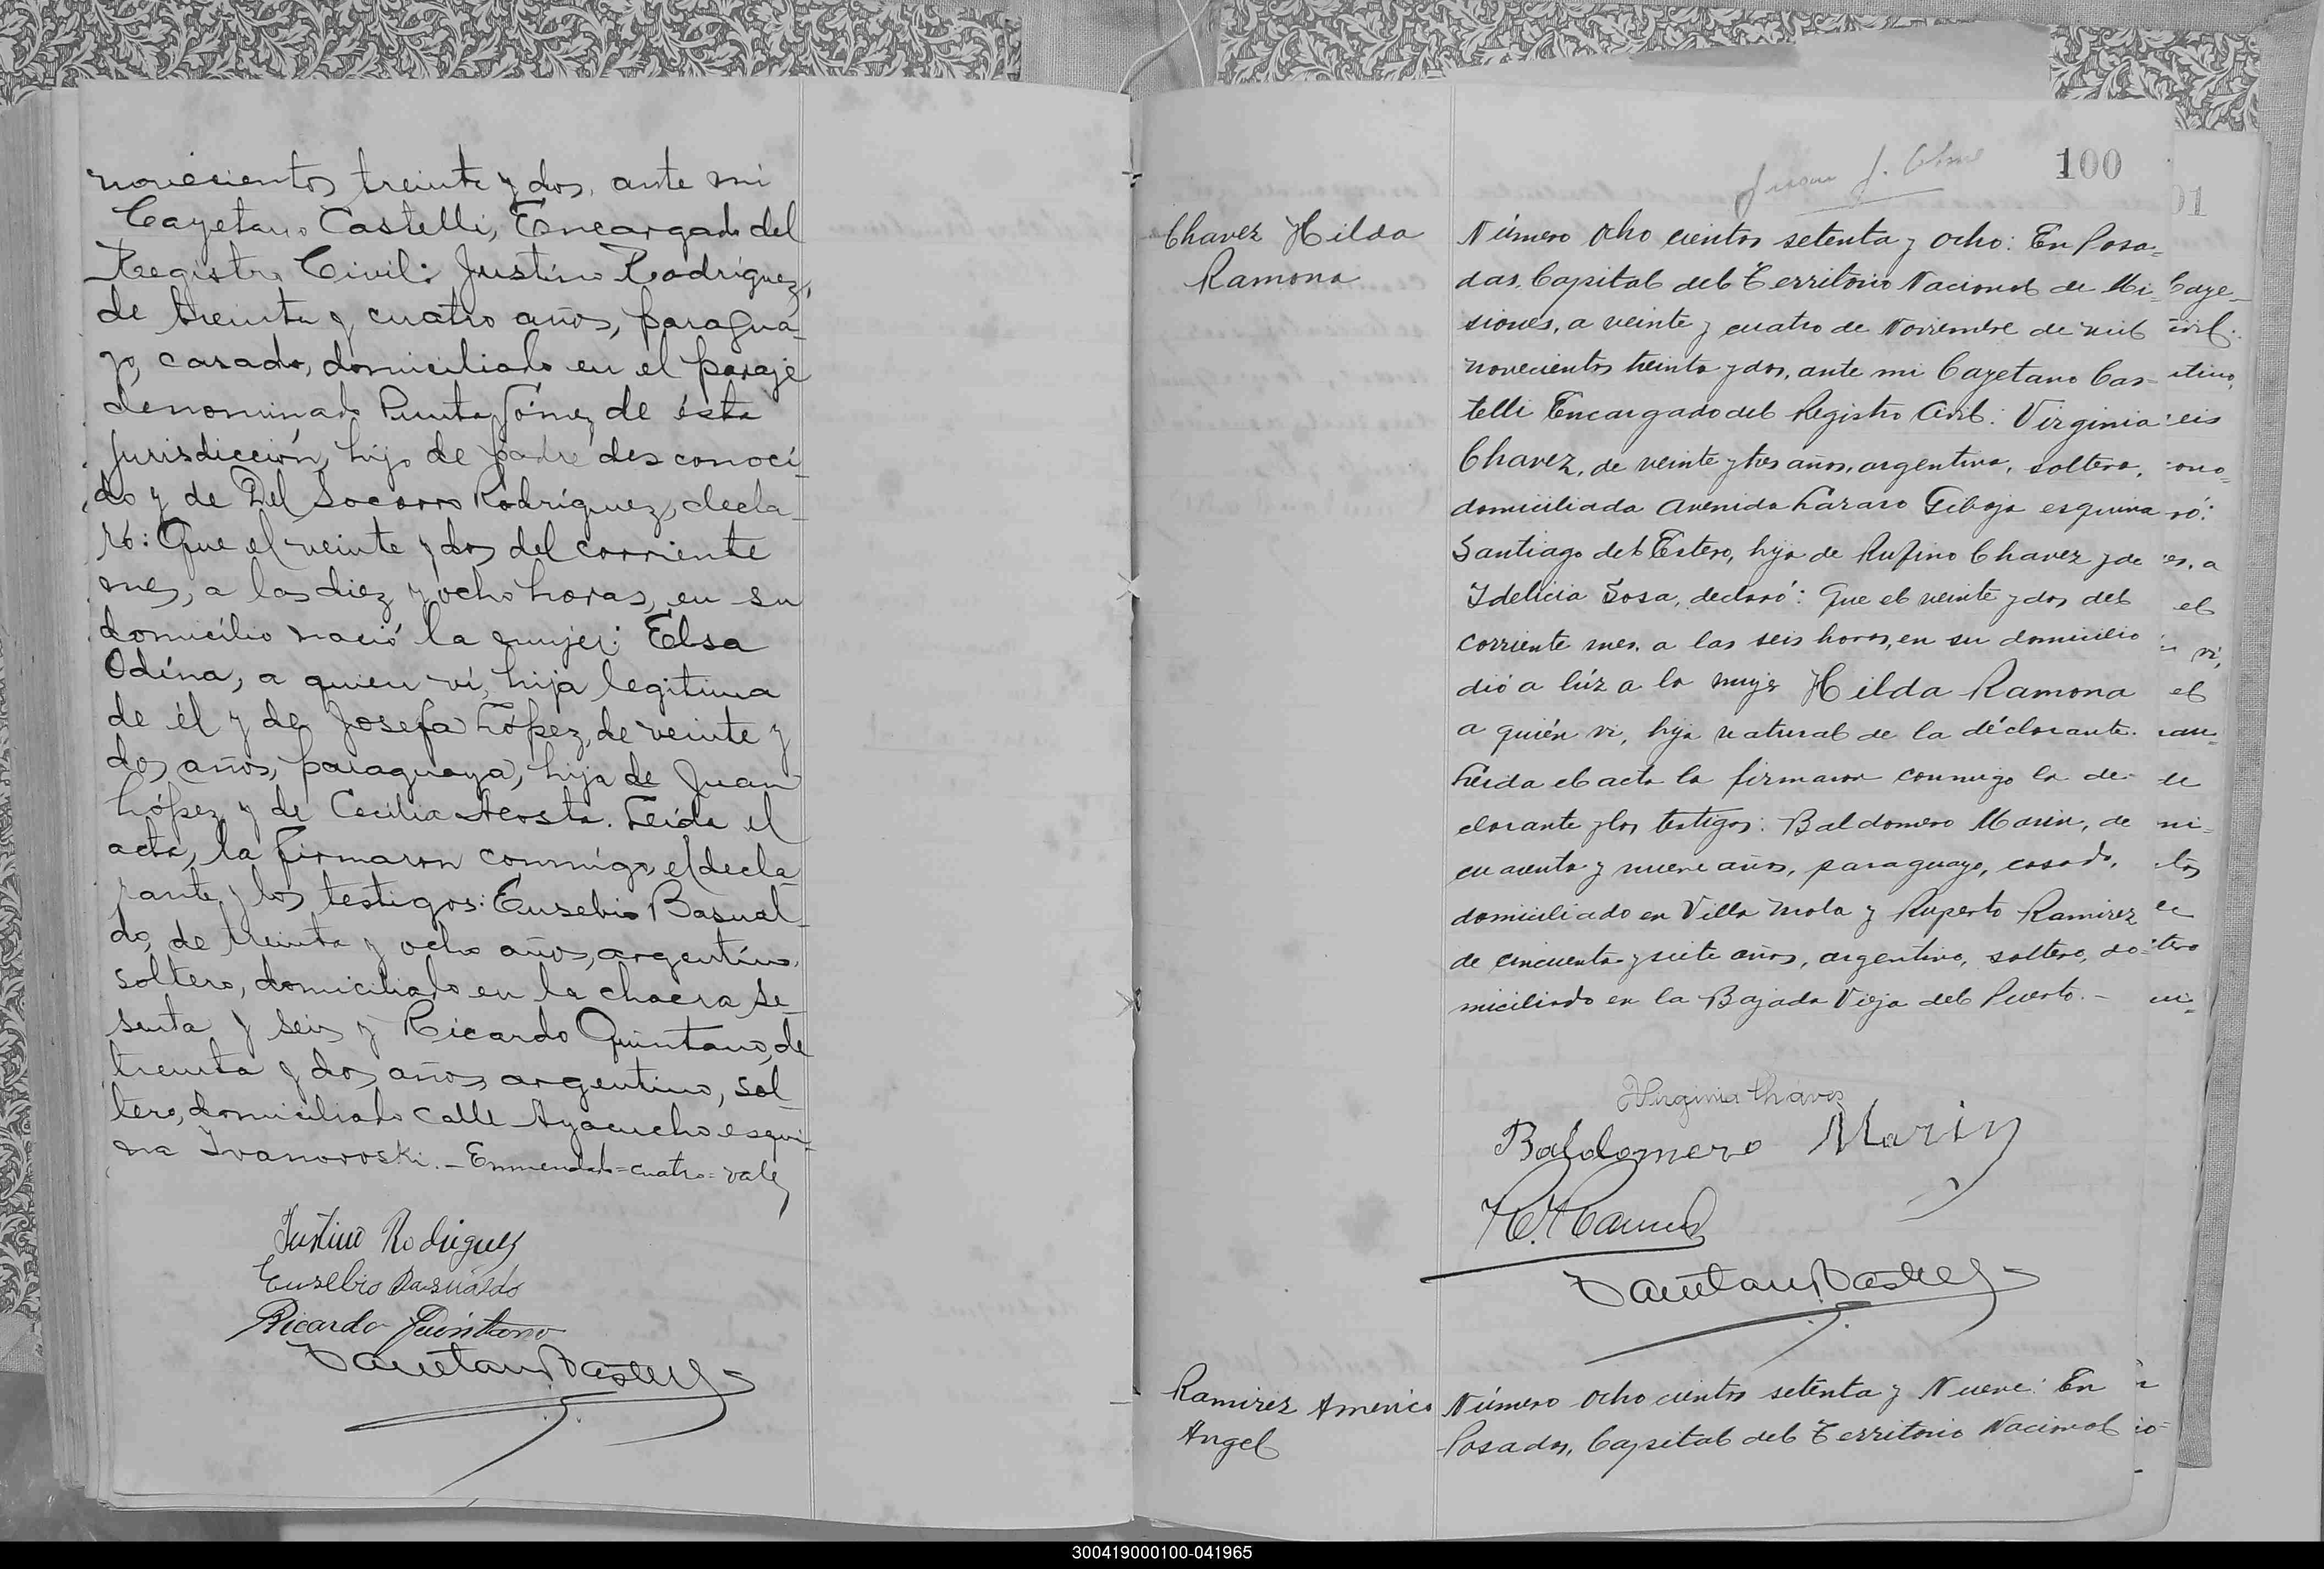 novecientos treinta y dos, ante mi
Cayetano Castelli, Encargado del
Registro Civil: Justino Rodríguez,
de treinta y cuatro años, paragua-
yo, casado, domiciliado en el paraje
denominado Punta Gómez de ésta
Jurisdicción, hijo de padre desconoci-
do y de Del Socorro Rodríguez, decla-
ró: Que el veinte y dos del corriente
mes, a las diez y ocho horas, en su
domicilio nació la mujer: Elsa
Odína, a quien ví, hija legitima
de él y de Josefa López, de veinte y
dos años, paraguaya, hija de Juan
López y de Cecilia Acosta. Leída el
acta, la firmaron conmigo, el decla-
rante y los testigos: Eusebio Basual-
do, de treinta y ocho años, argentino,
soltero, domiciliado en la chacra se-
senta y seis y Ricardo Quintano, de
treinta y dos años argentino, sol-
tero, domiciliado calle Ayacucho esqui-
na Ivanovoski. - Enmendado=cuatro=vale
Justino Rodriguez
Eusebio Basualdo
Ricardo Quintano
100
Chavez Hilda
Ramona
Número Ocho cientos setenta y ocho: En Posa-
das, Capital del Territorio Nacional de Mi-
siones, a veinte y cuatro de Noviembre de mil
novecientos treinta y dos, ante mi Cayetano Cas-
telli Encargado del Registro Civil: Virginia
Chavez, de veinte y tres años, argentina, soltera,
domiciliada Avenida Lázaro Giboja esquina
Santiago del Estero, hija de Rufino Chavez y de
Idelicia Sosa, declaró: Que el veinte y dos del
corriente mes, a las seis horas, en su domicilio
dió a lúz a la mujer Hilda Ramona
a quién vi, hija natural de la déclarante.
Leida el acta la firmaron conmigo la de-
clarante y los testigos: Baldomero Marin, de
cuarenta y nueve años, paraguayo, casado,
domiciliado en Villa Mola y Ruperto Ramirez
de cincuenta y siete años, argentino, soltero, do-
miciliado en la Bajada Vieja del Puerto. -
Virginia Chávez
Baldomero Marin
Ramirez Americo
Angel
Número Ocho cientos setenta y Nueve: En
Posadas, Capital del Territorio Nacional
300419000100-041965